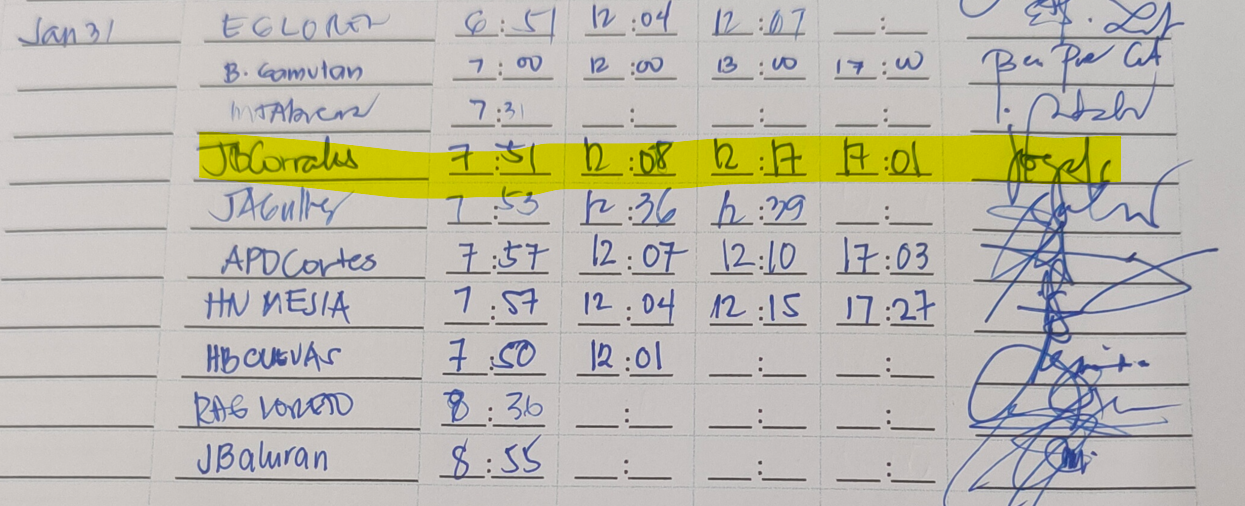 Jan 31 EGLOREN 6:51 12:04 12:07 __:__
B. Gamulan 7:00 12:00 13:00 17:00
7:31 __:__ __:__ __:__
JBCorrales 7:51 12:08 12:17 17:01
7:53 12:36 12:39 __:__
APDCortes 7:57 12:07 12:10 17:03
HN MESIA 7:57 12:04 12:15 17:27
HBCUEVAS 7:50 12:01 __:__ __:__
RAG LORETO 8:36 __:__ __:__ __:__
JBaluran 8:55 __:__ __:__ __:__